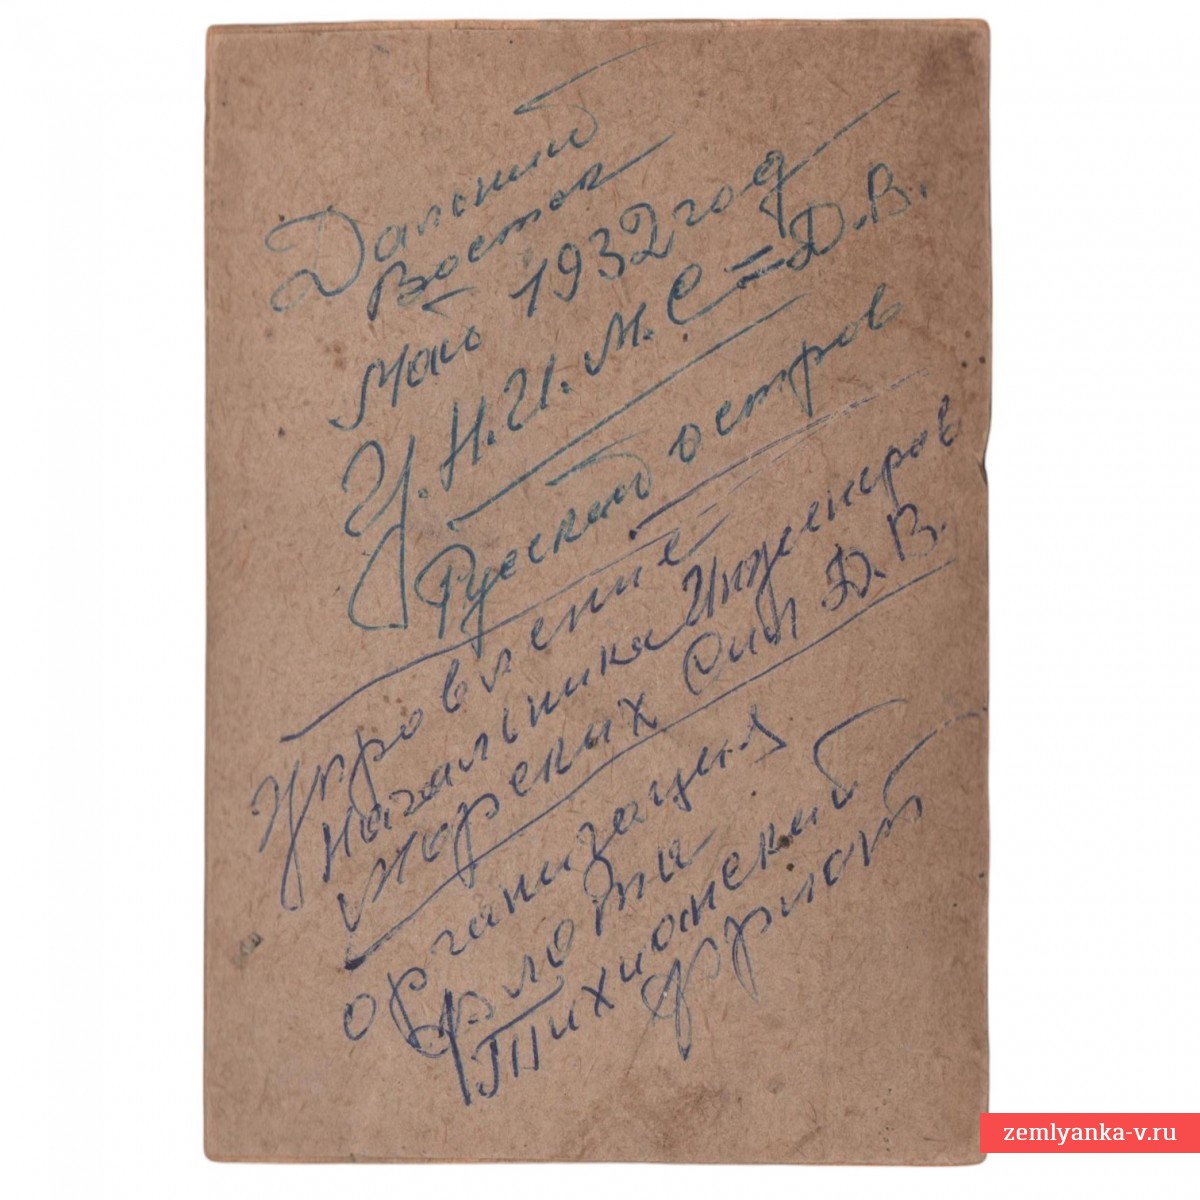 Дальний
Восток
Май 1932 год
У.Н.И.М.С=Д.В.
Русский остров
Управление
Начальника Инженеров
Морских Сил Д.В.
организация
Флота
Тихоокеанский
флот
zemlyanka-v.ru